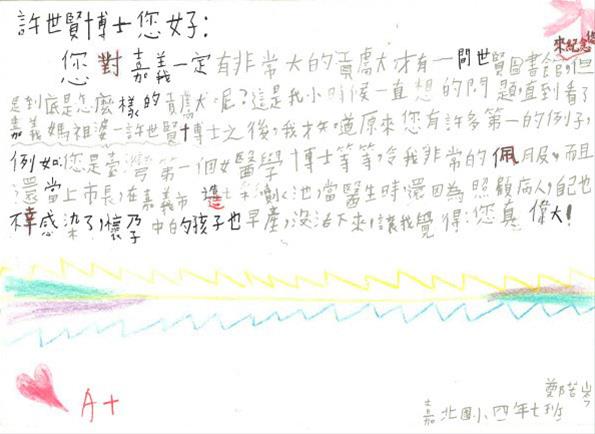 許世賢博士您好：
來紀念您
您對嘉義一定有非常大的貢獻才有一間世賢圖書館，但
是到底是怎麼樣的貢獻呢？這是我小時候一直想的問題直到看了
嘉義媽祖婆－許世賢博士之後，我才知道原來您有許多第一的例子，
例如：您是臺灣第一個女醫學博士等等，令我非常的佩服，而且
還當上市長，在嘉義市建七彩噴水池，當醫生時，還因為照顧病人，自己也
不幸感染了，懷孕中的孩子也早產，沒活下來，讓我覺得：您真偉大！
A+
嘉北國小四年七班